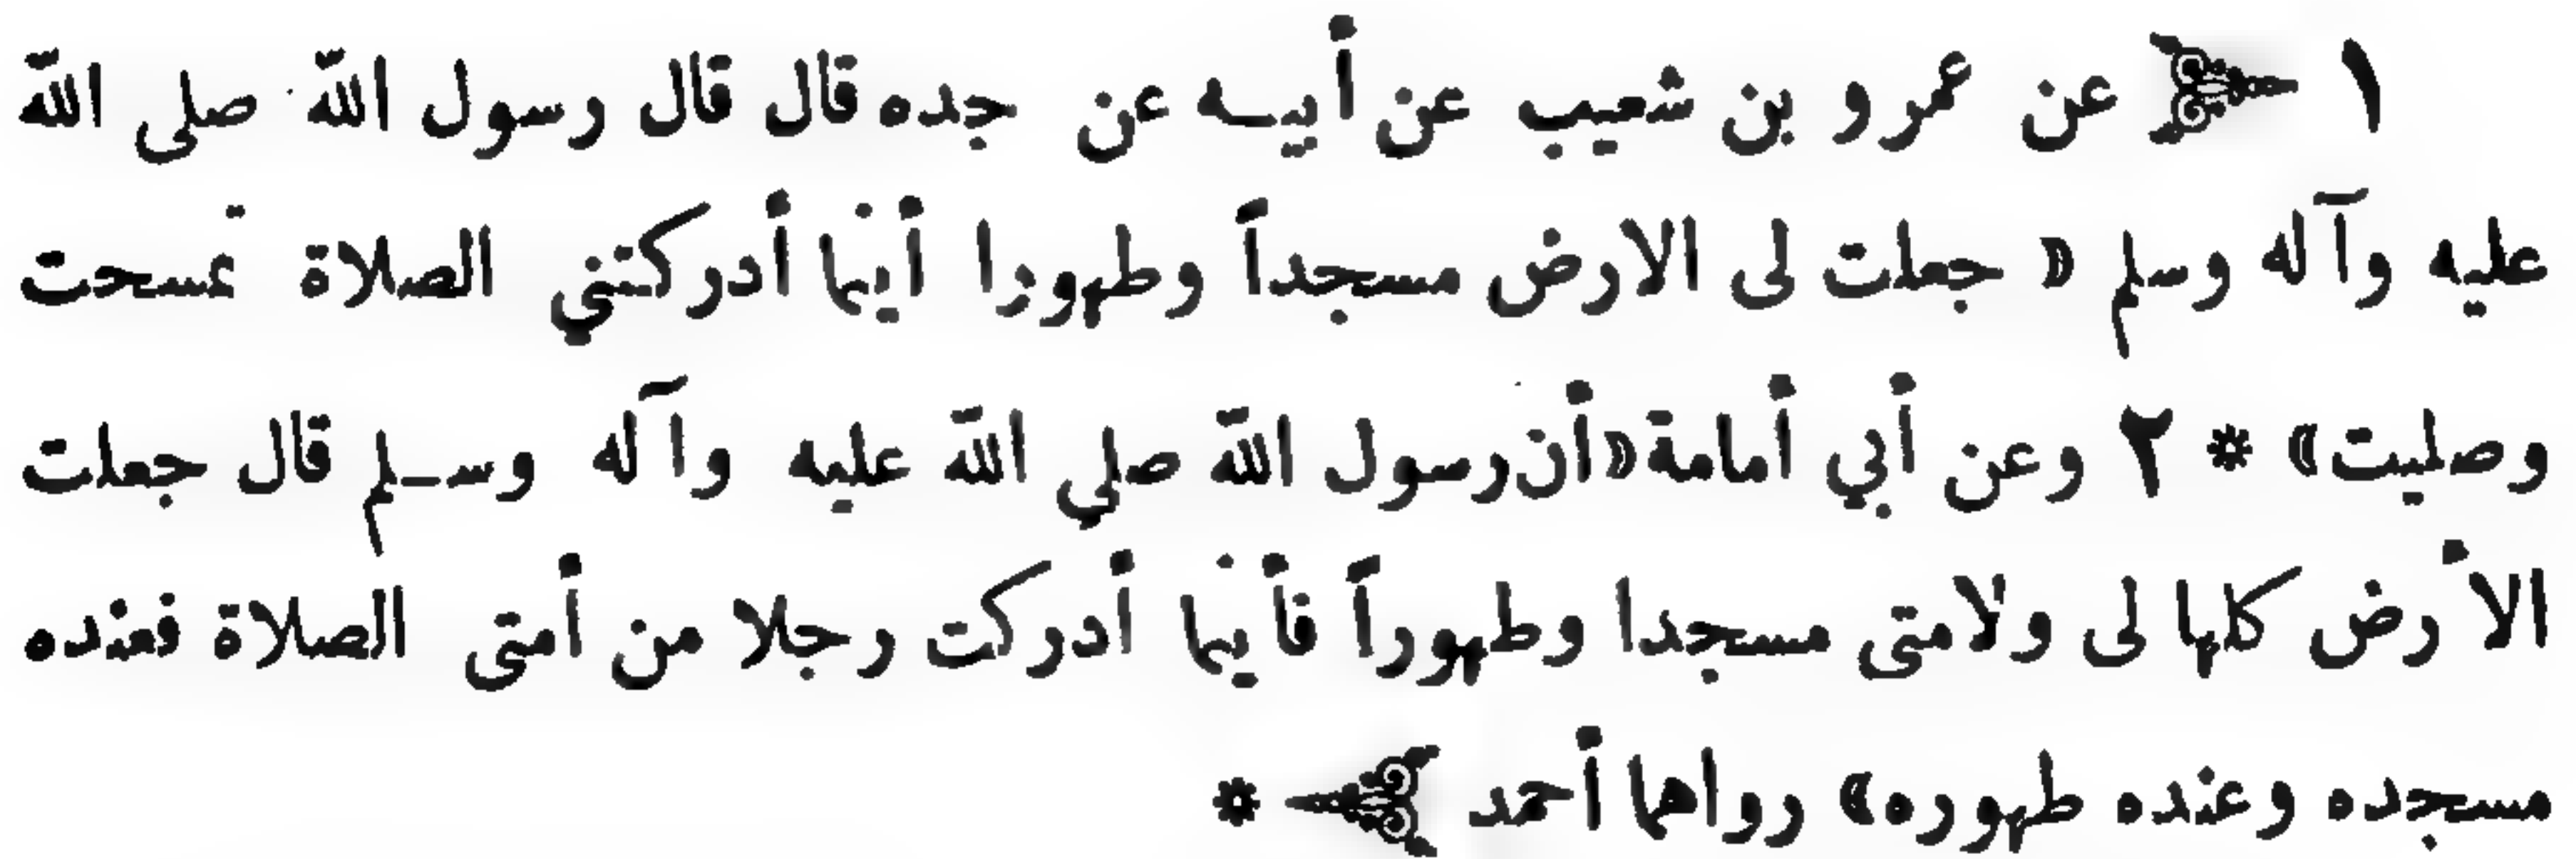 ١ ﴿ عن عمرو بن شعيب عن أبيه عن جده قال قال رسول الله صلى الله
عليه وآله وسلم « جعلت لى الارض مسجداً وطهورا أينما أدركتني الصلاة تمسحت
وصليت» * ٢ وعن أبي أمامة «أن رسول الله صلي الله عليه وآله وسلم قال جعلت
الأرض كلها لى ولامتى مسجدا وطهوراً فأينما أدركت رجلا من أمتى الصلاة فعنده
مسجده وعنده طهوره» رواهما أحمد ﴾ *